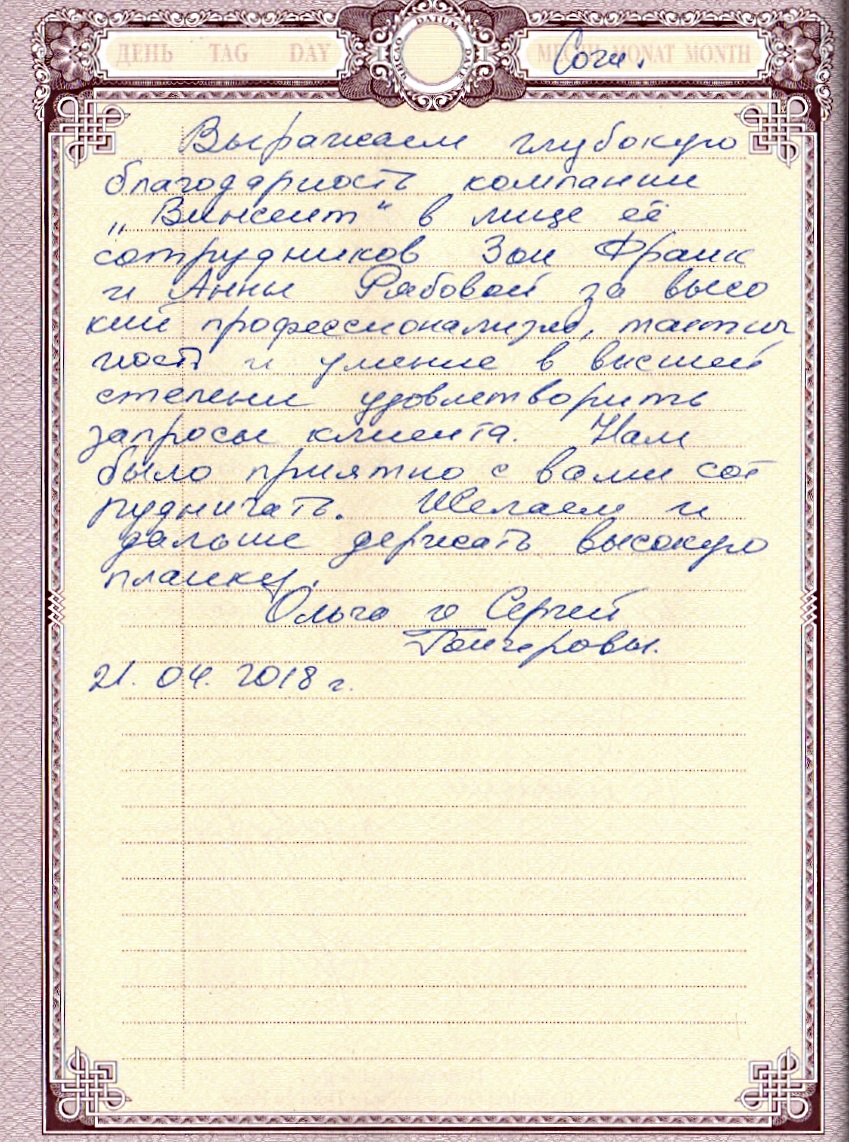 ДЕНЬ TAG DAY
DATUM
МЕСЯЦ MONAT MONTH
Сочи.
Выражаем глубокую
благодарность компании
„Винсент“ в лице её
сотрудников Зои Франк
и Анны Рябовой за высо
кий профессионализм, тактич
ность и умение в высшей
степени удовлетворить
запросы клиента. Нам
было приятно с вами сот
рудничать. Желаем и
дальше держать высокую
планку.
Ольга и Сергей
Гончаровы.
21. 04. 2018 г.